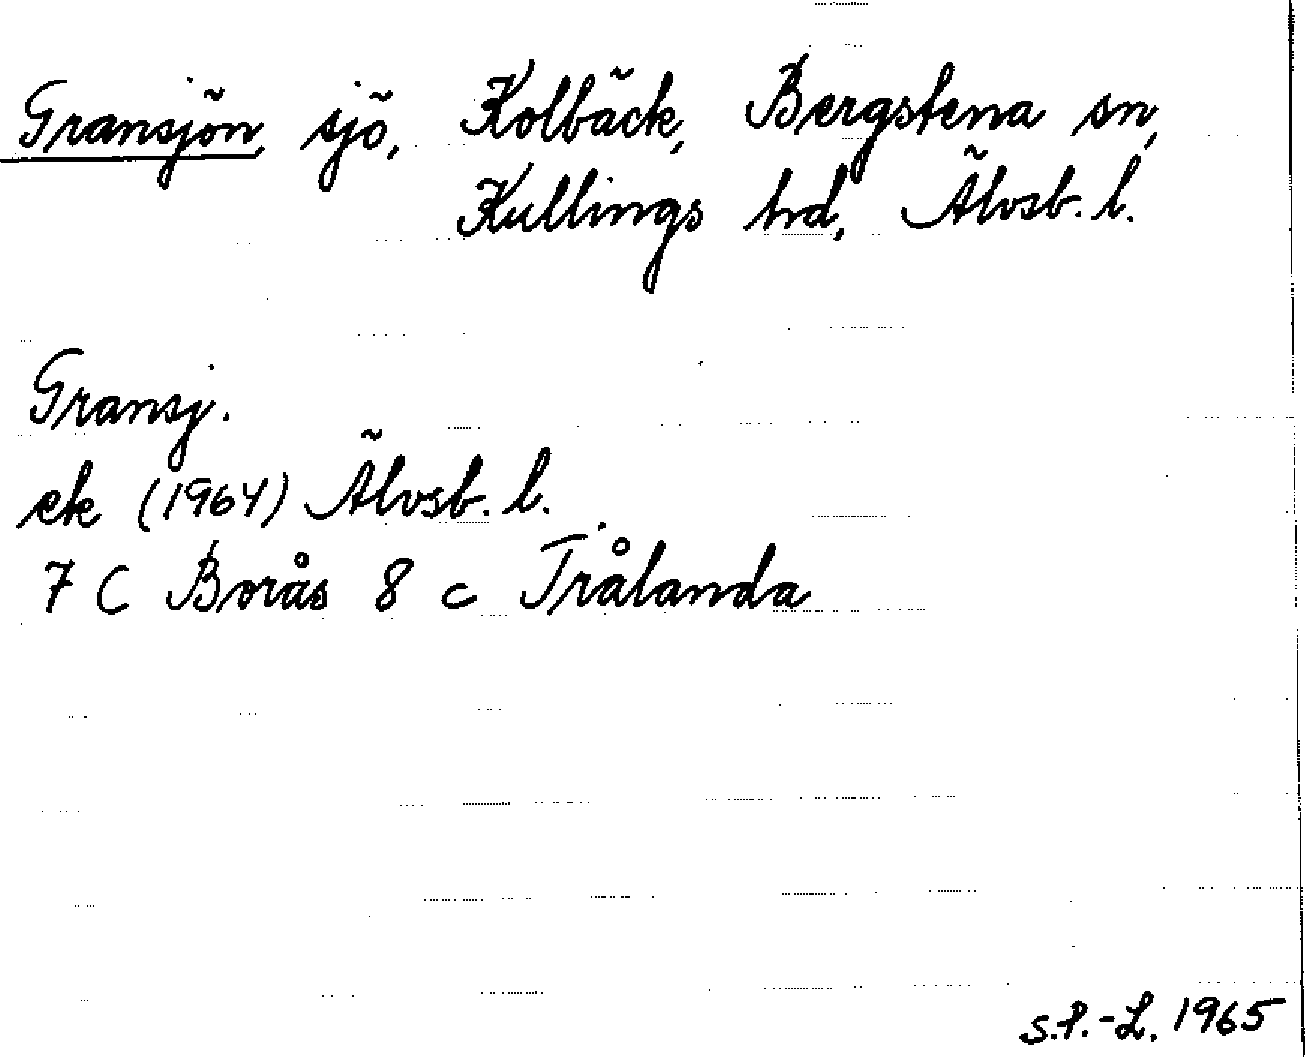 Gransjön, sjö, Kolbäck, Bergstena sn,
Kullings hd, Älvsb. l.
Gransj.
ek (1964) Älvsb. l.
7 C Borås 8 c Trålanda
S.P.-L. 1965